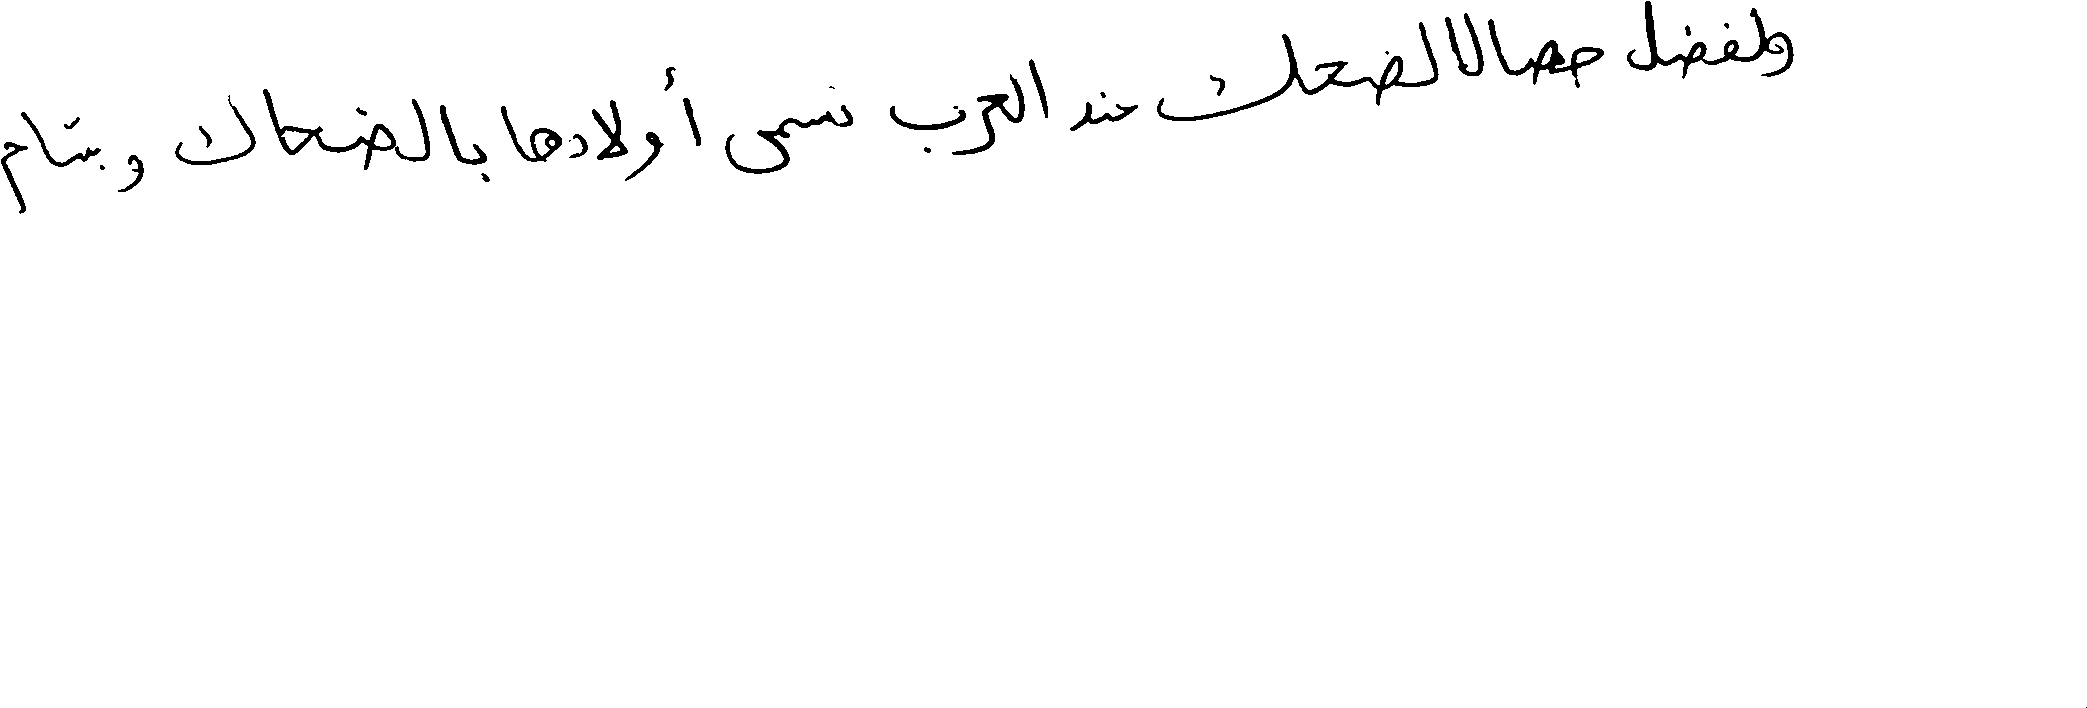 ولفضل خصال الضحك عند العرب تسمى أولادها بالضحاك وبسام